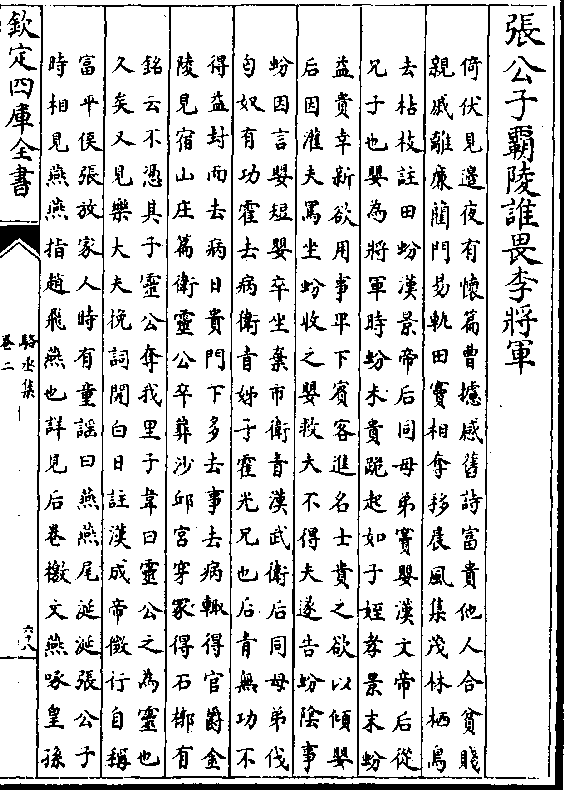 張公子霸陵誰畏李將軍
倚伏見邊夜有懷篇曹攄感舊詩富貴他人合貧賤
親戚離廉藺門易軌田竇相奪移晨風集茂林栖鳥
去枯枝註田蚡漢景帝后同母弟竇嬰漢文帝后從
兄子也嬰為將軍時蚡未貴跪起如子姪孝景末蚡
益貴幸新欲用事卑下賓客進名士貴之欲以傾嬰
后因灌夫罵坐蚡收之嬰救夫不得夫遂告蚡陰事
蚡因言嬰短嬰卒坐棄市衛青漢武衛后同母弟伐
匈奴有功霍去病衛青姊子霍光兄也后青無功不
得益封而去病日貴門下多去事去病輙得官爵金
陵見宿山庄篇衛靈公卒葬沙邱宮穿冢得石槨有
銘云不憑其子靈公奪我里子韋曰靈公之為靈也
久矣又見樂大夫挽詞閒白日註漢成帝微行自稱
富平侯張放家人時有童謠曰燕燕尾涎涎張公子
時相見燕燕指趙飛燕也詳見后卷檄文燕啄皇孫
欽定四庫全書
駱丞集
卷二
六八